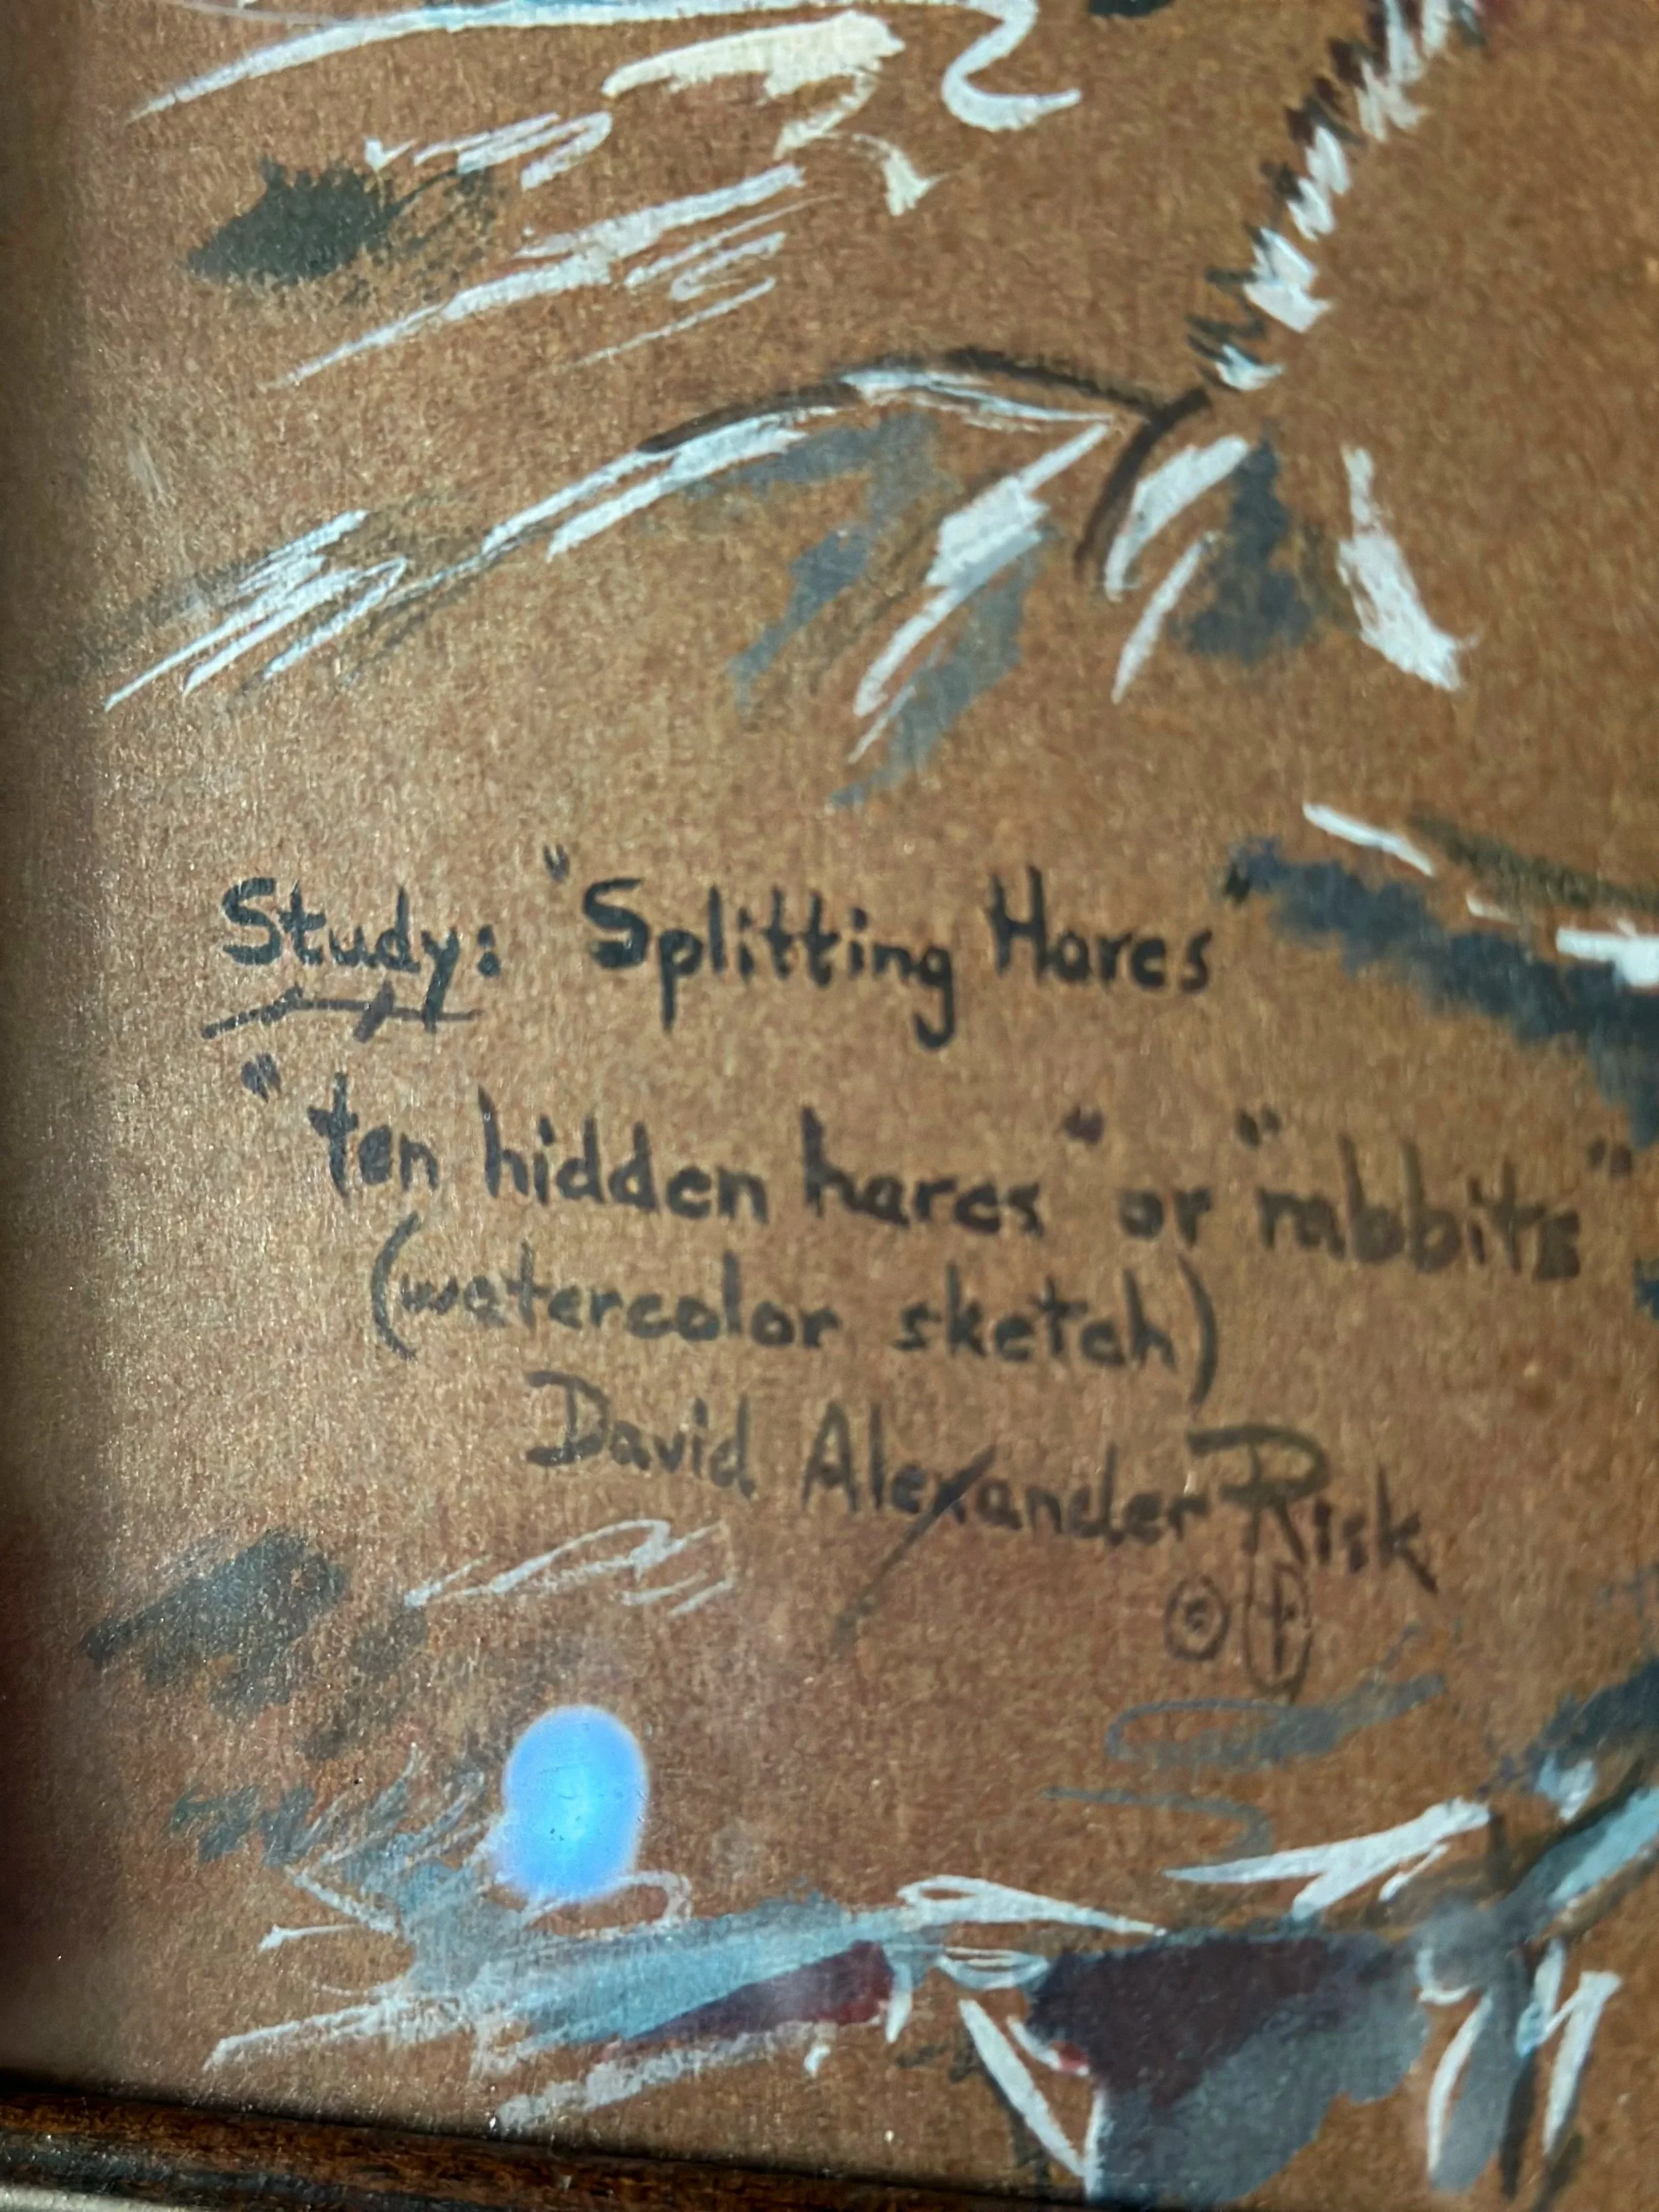 Study: "Splitting Hares"
"ten hidden hares" or "rabbits"
(watercolor sketch)
David Alexander Risk
©